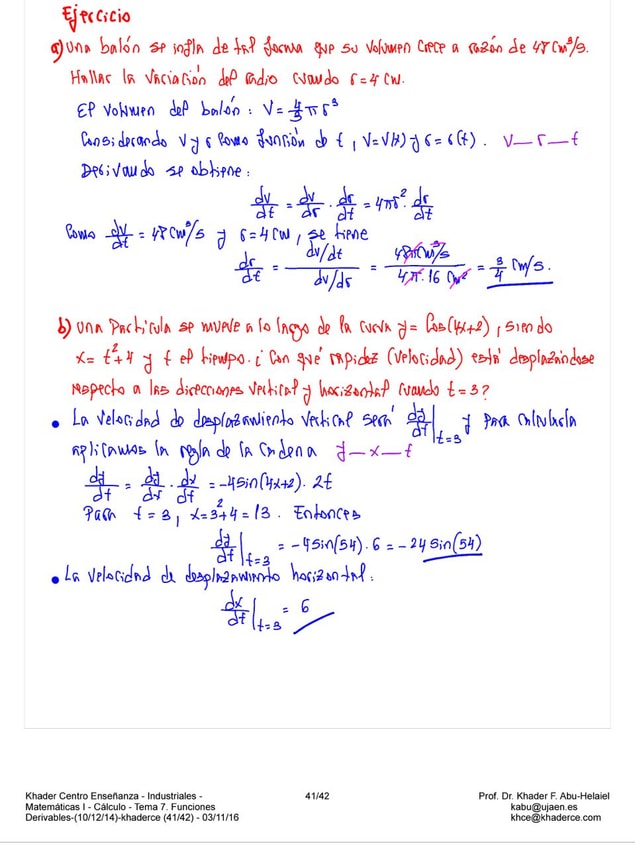 Ejercicio
a) Una balón se infla de tal forma que su volumen crece a razón de 48 cm³/s.
Hallar la variación del radio cuando r=4 cm.
El volumen del balón: V = 4/3 π r³
Considerando V y r como función de t, V=V(t) y r=r(t). V — r — t
Derivando se obtiene:
dv/dt = dv/dr · dr/dt = 4πr² · dr/dt
Como dv/dt = 48 cm³/s y r=4 cm, se tiene
dr/dt = (dv/dt)/(dv/dr) = 48π cm³/s / 4π·16 cm² = 3/4 cm/s.
b) Una partícula se mueve a lo largo de la curva y = cos(4x+2), siendo
x = t²+4 y t el tiempo. ¿Con qué rapidez (velocidad) está desplazándose
respecto a las direcciones vertical y horizontal cuando t=3?
• La velocidad de desplazamiento vertical será dy/dt|t=3 y para calcularla
aplicamos la regla de la cadena y — x — t
dy/dt = dy/dx · dx/dt = -4 sin(4x+2) · 2t
Para t=3, x=3²+4=13. Entonces
dy/dt|t=3 = -4 sin(54) · 6 = -24 sin(54)
• La velocidad de desplazamiento horizontal:
dx/dt|t=3 = 6
Khader Centro Enseñanza - Industriales -
Matemáticas I - Cálculo - Tema 7. Funciones
Derivables-(10/12/14)-khaderce (41/42) - 03/11/16
41/42
Prof. Dr. Khader F. Abu-Helaiel
kabu@ujaen.es
khce@khaderce.com